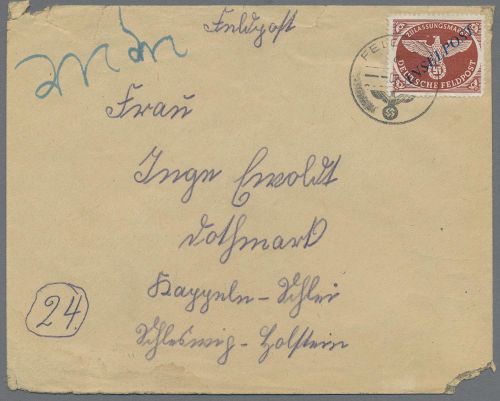 Feldpost
ZULASSUNGSMARKE
INSELPOST
DEUTSCHE FELDPOST
FELD
Frau
Inge Ewoldt
Dothmark
Kappeln-Schlei
24
Schleswig-Holstein